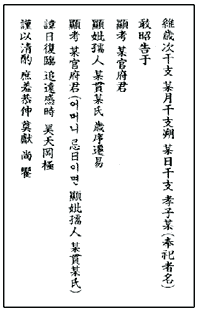 維歲次干支 某月干支朔 某日干支 孝子某(奉祀者名)
敢昭告于
顯考 某官府君
顯妣孺人 某貫某氏 歲序遷易
顯考 某官府君(어머니 忌日이면 顯妣孺人 某貫某氏)
諱日復臨 追遠感時 昊天罔極
謹以淸酌 庶羞恭伸 奠獻 尙 饗